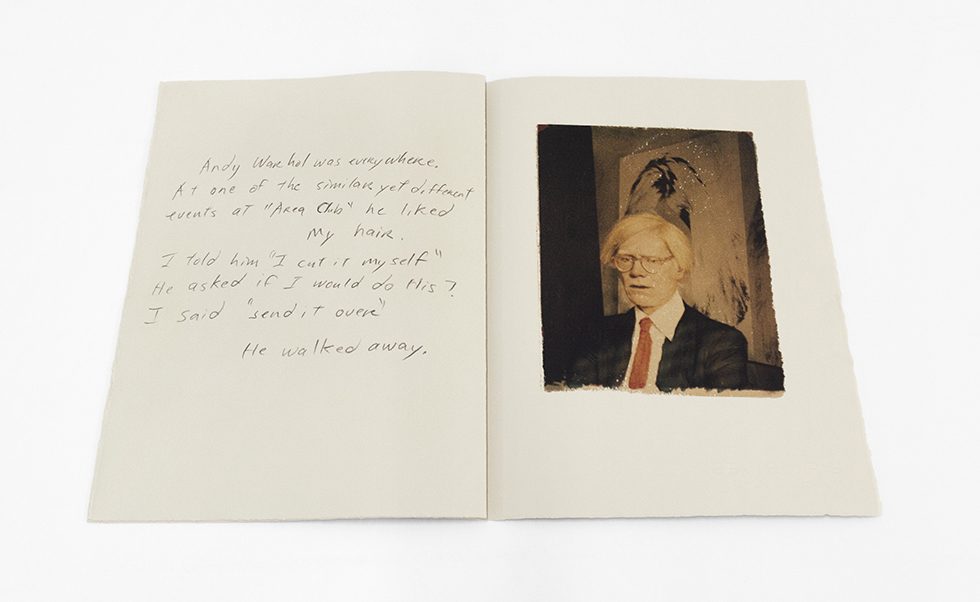 Andy Warhol was everywhere.
At one of the similar yet different
events at "Area Club" he liked
my hair.
I told him "I cut it myself"
He asked if I would do His?
I said "send it over"
He walked away.